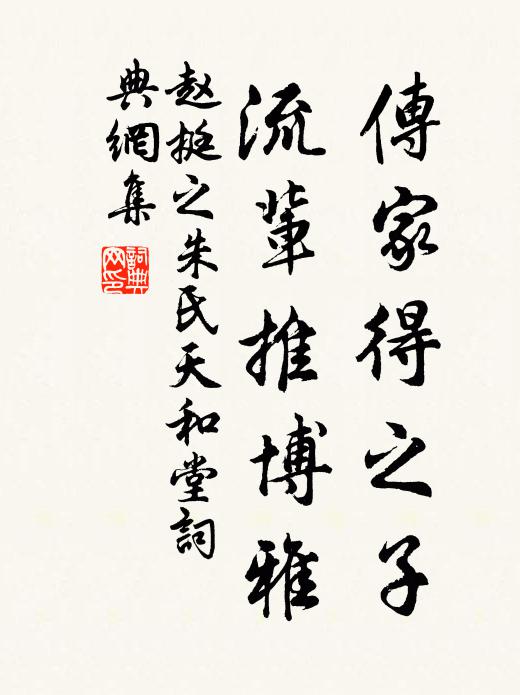 傳家得之子
流輩推博雅
赵挺之朱氏天和堂詞
典網集
詞典
网印